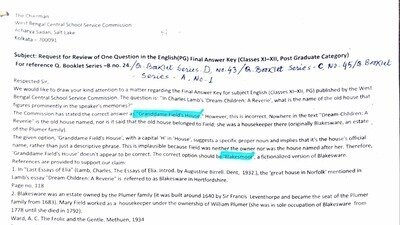 The Chairman
West Bengal Central School Service Commission
Acharya Sadan, Salt Lake
Kolkata – 700091
Subject: Request for Review of One Question in the English(PG) Final Answer Key (Classes XI–XII, Post Graduate Category)
For reference Q. Booklet Series –B no. 24/Q. Booklet Series-D, No. 43/Q. Booklet Series - C No. 45/Q. Booklet
Series - A, No. 1
Respected Sir,
We would like to draw your kind attention to a matter regarding the Final Answer Key for subject English (Classes XI–XII, PG) published by the West
Bengal Central School Service Commission. The question is: "In Charles Lamb's 'Dream Children: A Reverie', what is the name of the old house that
figures prominently in the speaker's memories?"
The Commission has stated the correct answer as "Granddame Field's House". However, this is incorrect. Nowhere in the text "Dream Children: A
Reverie" is the old house named, nor is it said that the old house belonged to Field; she was a housekeeper there (originally Blakesware, an estate
of the Plumer family).
The given option, 'Granddame Field's House', with a capital 'H' in 'House', suggests a specific proper noun and implies that it's the house's official
name, rather than just a descriptive phrase. This is implausible because Field was neither the owner nor was the house named after her. Therefore,
'Granddame Field's House' doesn't appear to be correct. The correct option should be "Blakesmoor", a fictionalized version of Blakesware.
References are provided to support our claim:
1. In "Last Essays of Elia" (Lamb, Charles. The Essays of Elia. Introd. by Augustine Birrell. Dent, 1932.), the 'great house in Norfolk' mentioned in
Lamb's essay "Dream Children: A Reverie" is referred to as Blakesware in Hertfordshire.
Page no. 118
2. Blakesware was an estate owned by the Plumer family (it was built around 1640 by Sir Francis Leventhorpe and became the seat of the Plumer
family from 1683). Mary Field worked as a housekeeper under the ownership of William Plumer (she was in sole occupation of Blakesware from
1778 until she died in 1792).
Ward, A. C. The Frolic and the Gentle. Methuen, 1934